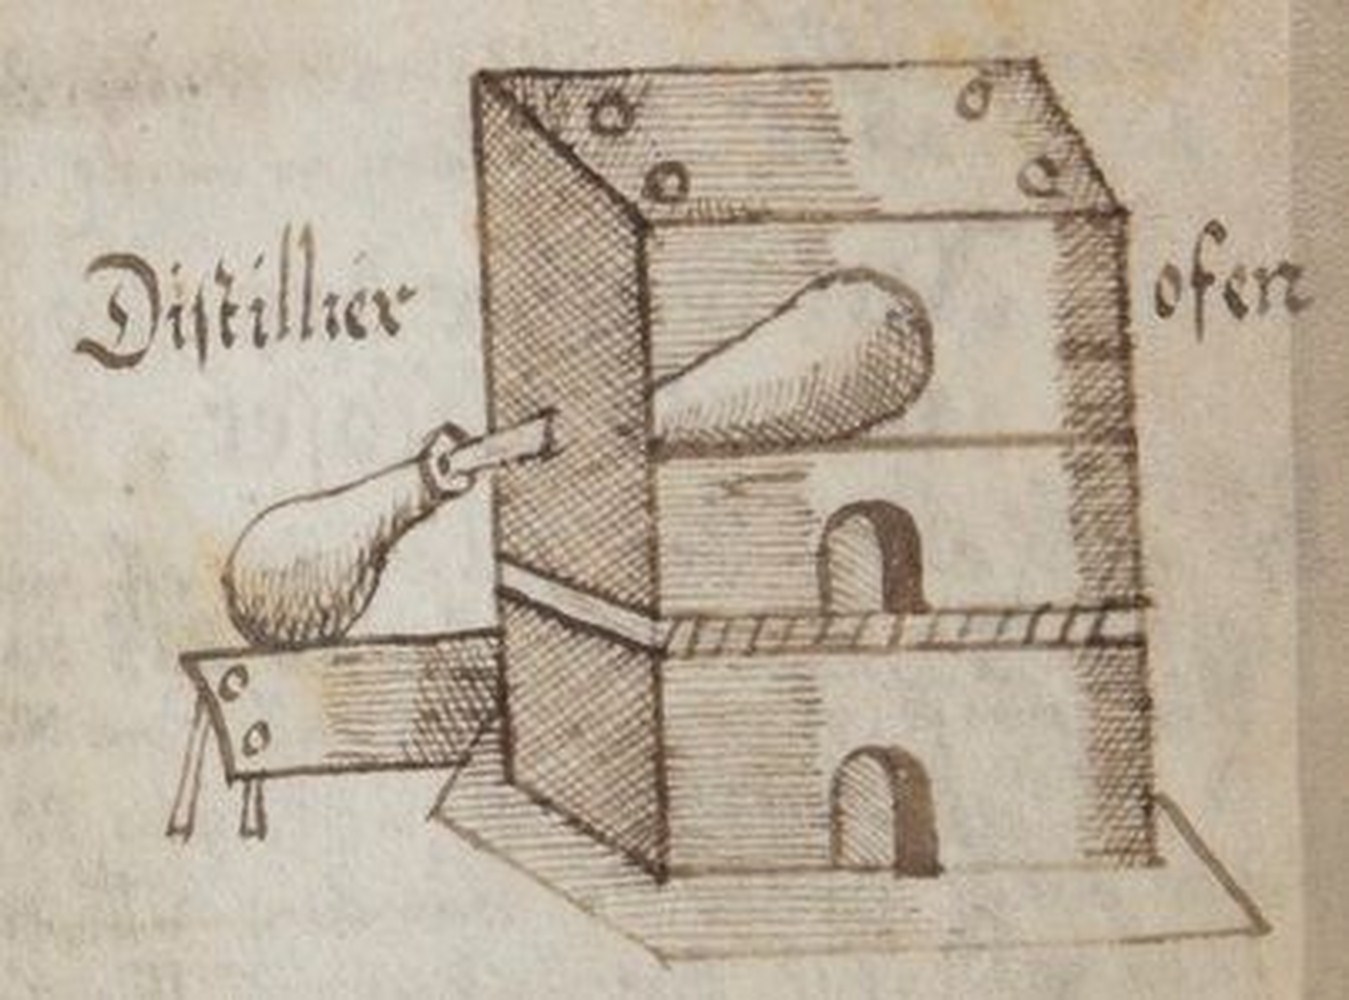 Distillier ofen